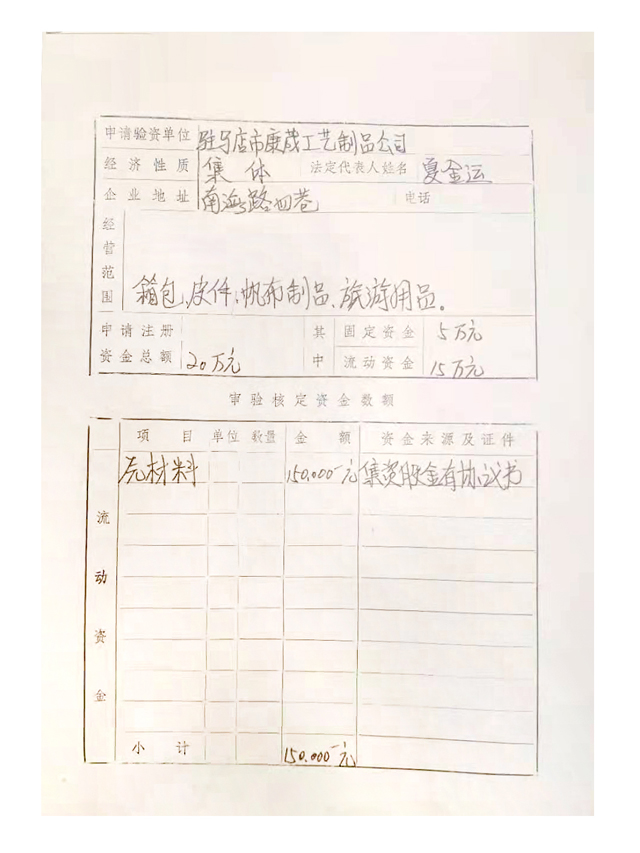 申请验资单位 驻马店市康茂工艺制品公司
经济性质 集体 法定代表人姓名 夏金运
企业地址 南海路四巷 电话
经营范围 箱包、皮件、帆布制品、旅游用品。
申请注册资金总额 20万元 其中 固定资金 5万元
流动资金 15万元
审验核定资金数额
项目 单位 数量 金额 资金来源及证件
流动资金 元材料 150.000元 集资股金有协议书
小计 150.000元